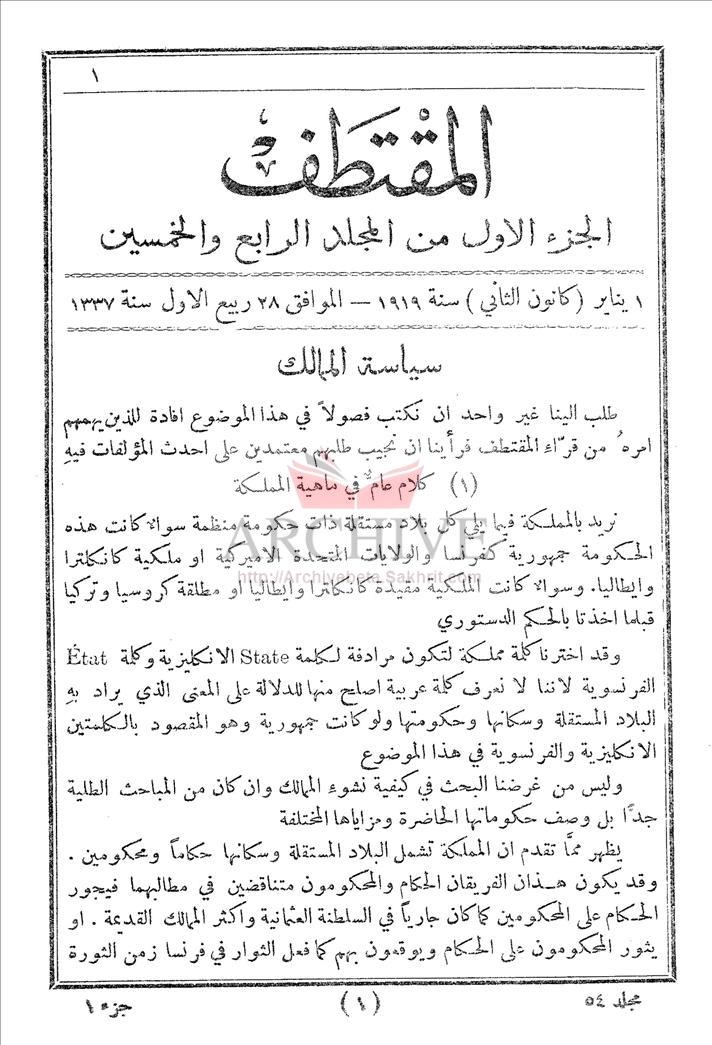 ١
المقتطف
الجزء الاول من المجلد الرابع والخمسين
١ يناير (كانون الثاني) سنة ١٩١٩ — الموافق ٢٨ ربيع الاول سنة ١٣٣٧
سياسة الممالك
طلب الينا غير واحد ان نكتب فصولاً في هذا الموضوع افادة للذين يهمهم
امرهُ من قرّاء المقتطف فرأينا ان نجيب طلبهم معتمدين على احدث المؤلفات فيهِ
(١) كلام عام في ماهية المملكة
نريد بالمملكة فيما يلي كل بلاد مستقلة ذات حكومة منظمة سواء كانت هذه
الحكومة جمهورية كفرنسا والولايات المتحدة الاميركية او ملكية كانكلترا
وايطاليا. وسواء كانت الملكية مقيدة كانكلترا وايطاليا او مطلقة كروسيا وتركيا
قبلما اخذتا بالحكم الدستوري
وقد اخترنا كلمة مملكة لتكون مرادفة لكلمة State الانكليزية وكلمة État
الفرنسوية لاننا لا نعرف كلمة عربية اصلح منها للدلالة على المعنى الذي يراد بهِ
البلاد المستقلة وسكانها وحكومتها ولو كانت جمهورية وهو المقصود بالكلمتين
الانكليزية والفرنسوية في هذا الموضوع
وليس من غرضنا البحث في كيفية نشوء الممالك وان كان من المباحث الطلية
جدًّا بل وصف حكوماتها الحاضرة ومزاياها المختلفة
يظهر ممَّا تقدم ان المملكة تشمل البلاد المستقلة وسكانها حكاماً ومحكومين .
وقد يكون هذان الفريقان الحكام والمحكومون متناقضين في مطالبهما فيجور
الحكام على المحكومين كما كان جارياً في السلطنة العثمانية واكثر الممالك القديمة . او
يثور المحكومون على الحكام ويوقعون بهم كما فعل الثوار في فرنسا زمن الثورة
جزء ١
(١)
مجلد ٥٤
ARCHIVE
http://Archivebeta.Sakhrit.com